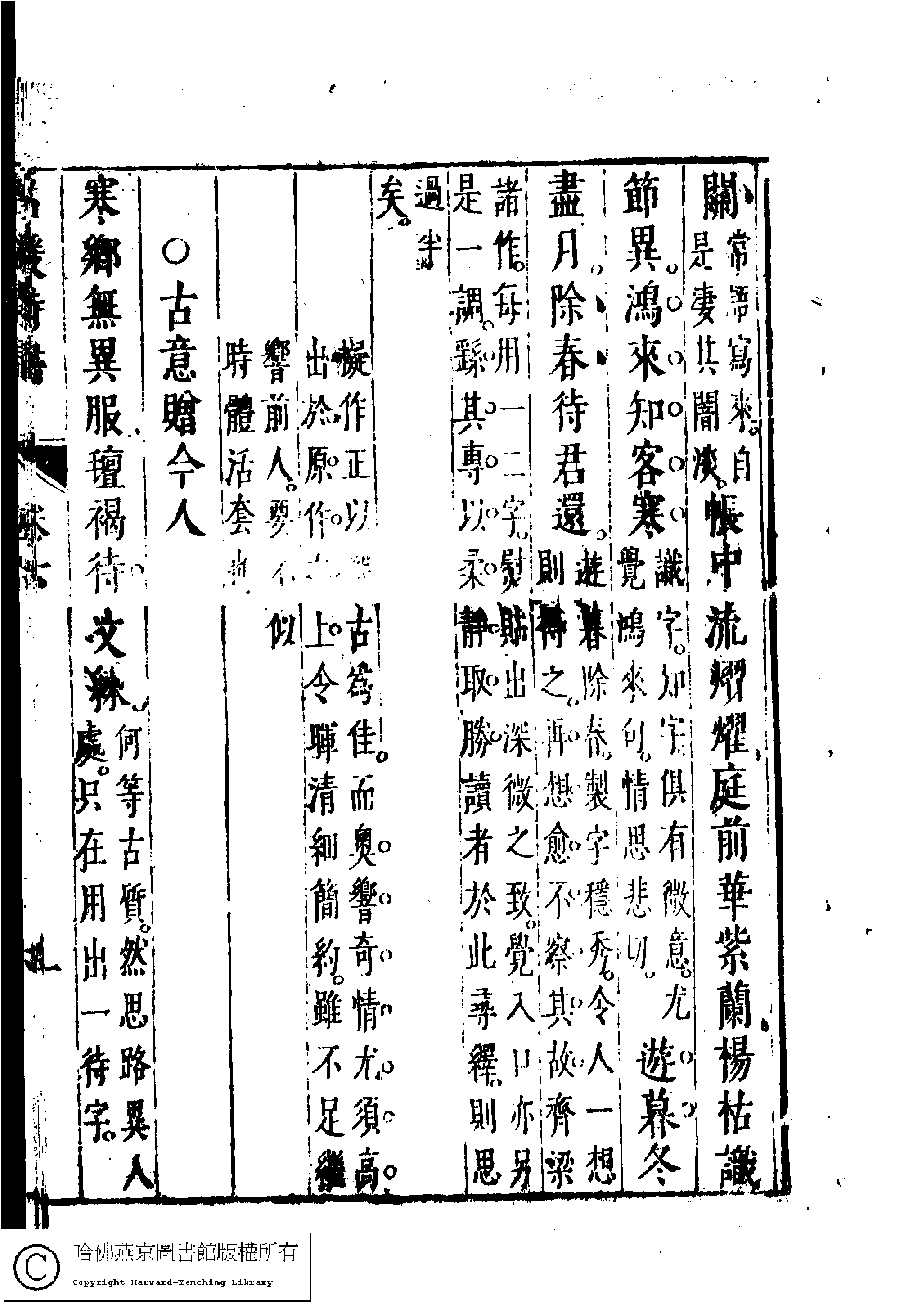 關
常語寫來。自
是凄其闇淡。
帳中流熠耀庭前華紫蘭楊枯識
節異。鴻來知客寒
識字。知字俱有微意。尤
覺鴻來句。情思悲切。
遊暮冬
盡月除春待君還
遊暮除春。製字穩秀。令人一想
則得之。再想愈不察其故齊梁
諸作。每用一二字。慰貼出深微之致。覺入口亦另
是一調。繇其專以柔靜取勝讀者於此尋繹。則思
過半
矣。
擬作正以古為佳。而奧響奇情尤須高
出於原作之上。令暉清細簡約。雖不足繼
響前人。要不似
時體活套也
○古意贈今人
寒鄉無異服氊褐待文練
何等古質。然思路異人
處。只在用出一待字。
名媛詩歸
哈佛燕京圖書館版權所有
Copyright Harvard-Yenching Library